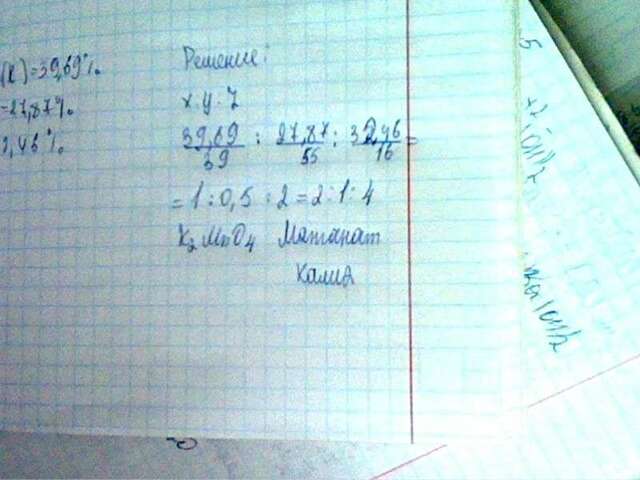 (K)=39,69%
=27,87%
Решение:
x:y:z
39,69/39 : 27,87/55 : 32,46/16 =
=1:0,5:2=2:1:4
K₂MnO₄ Манганат
Калия
5